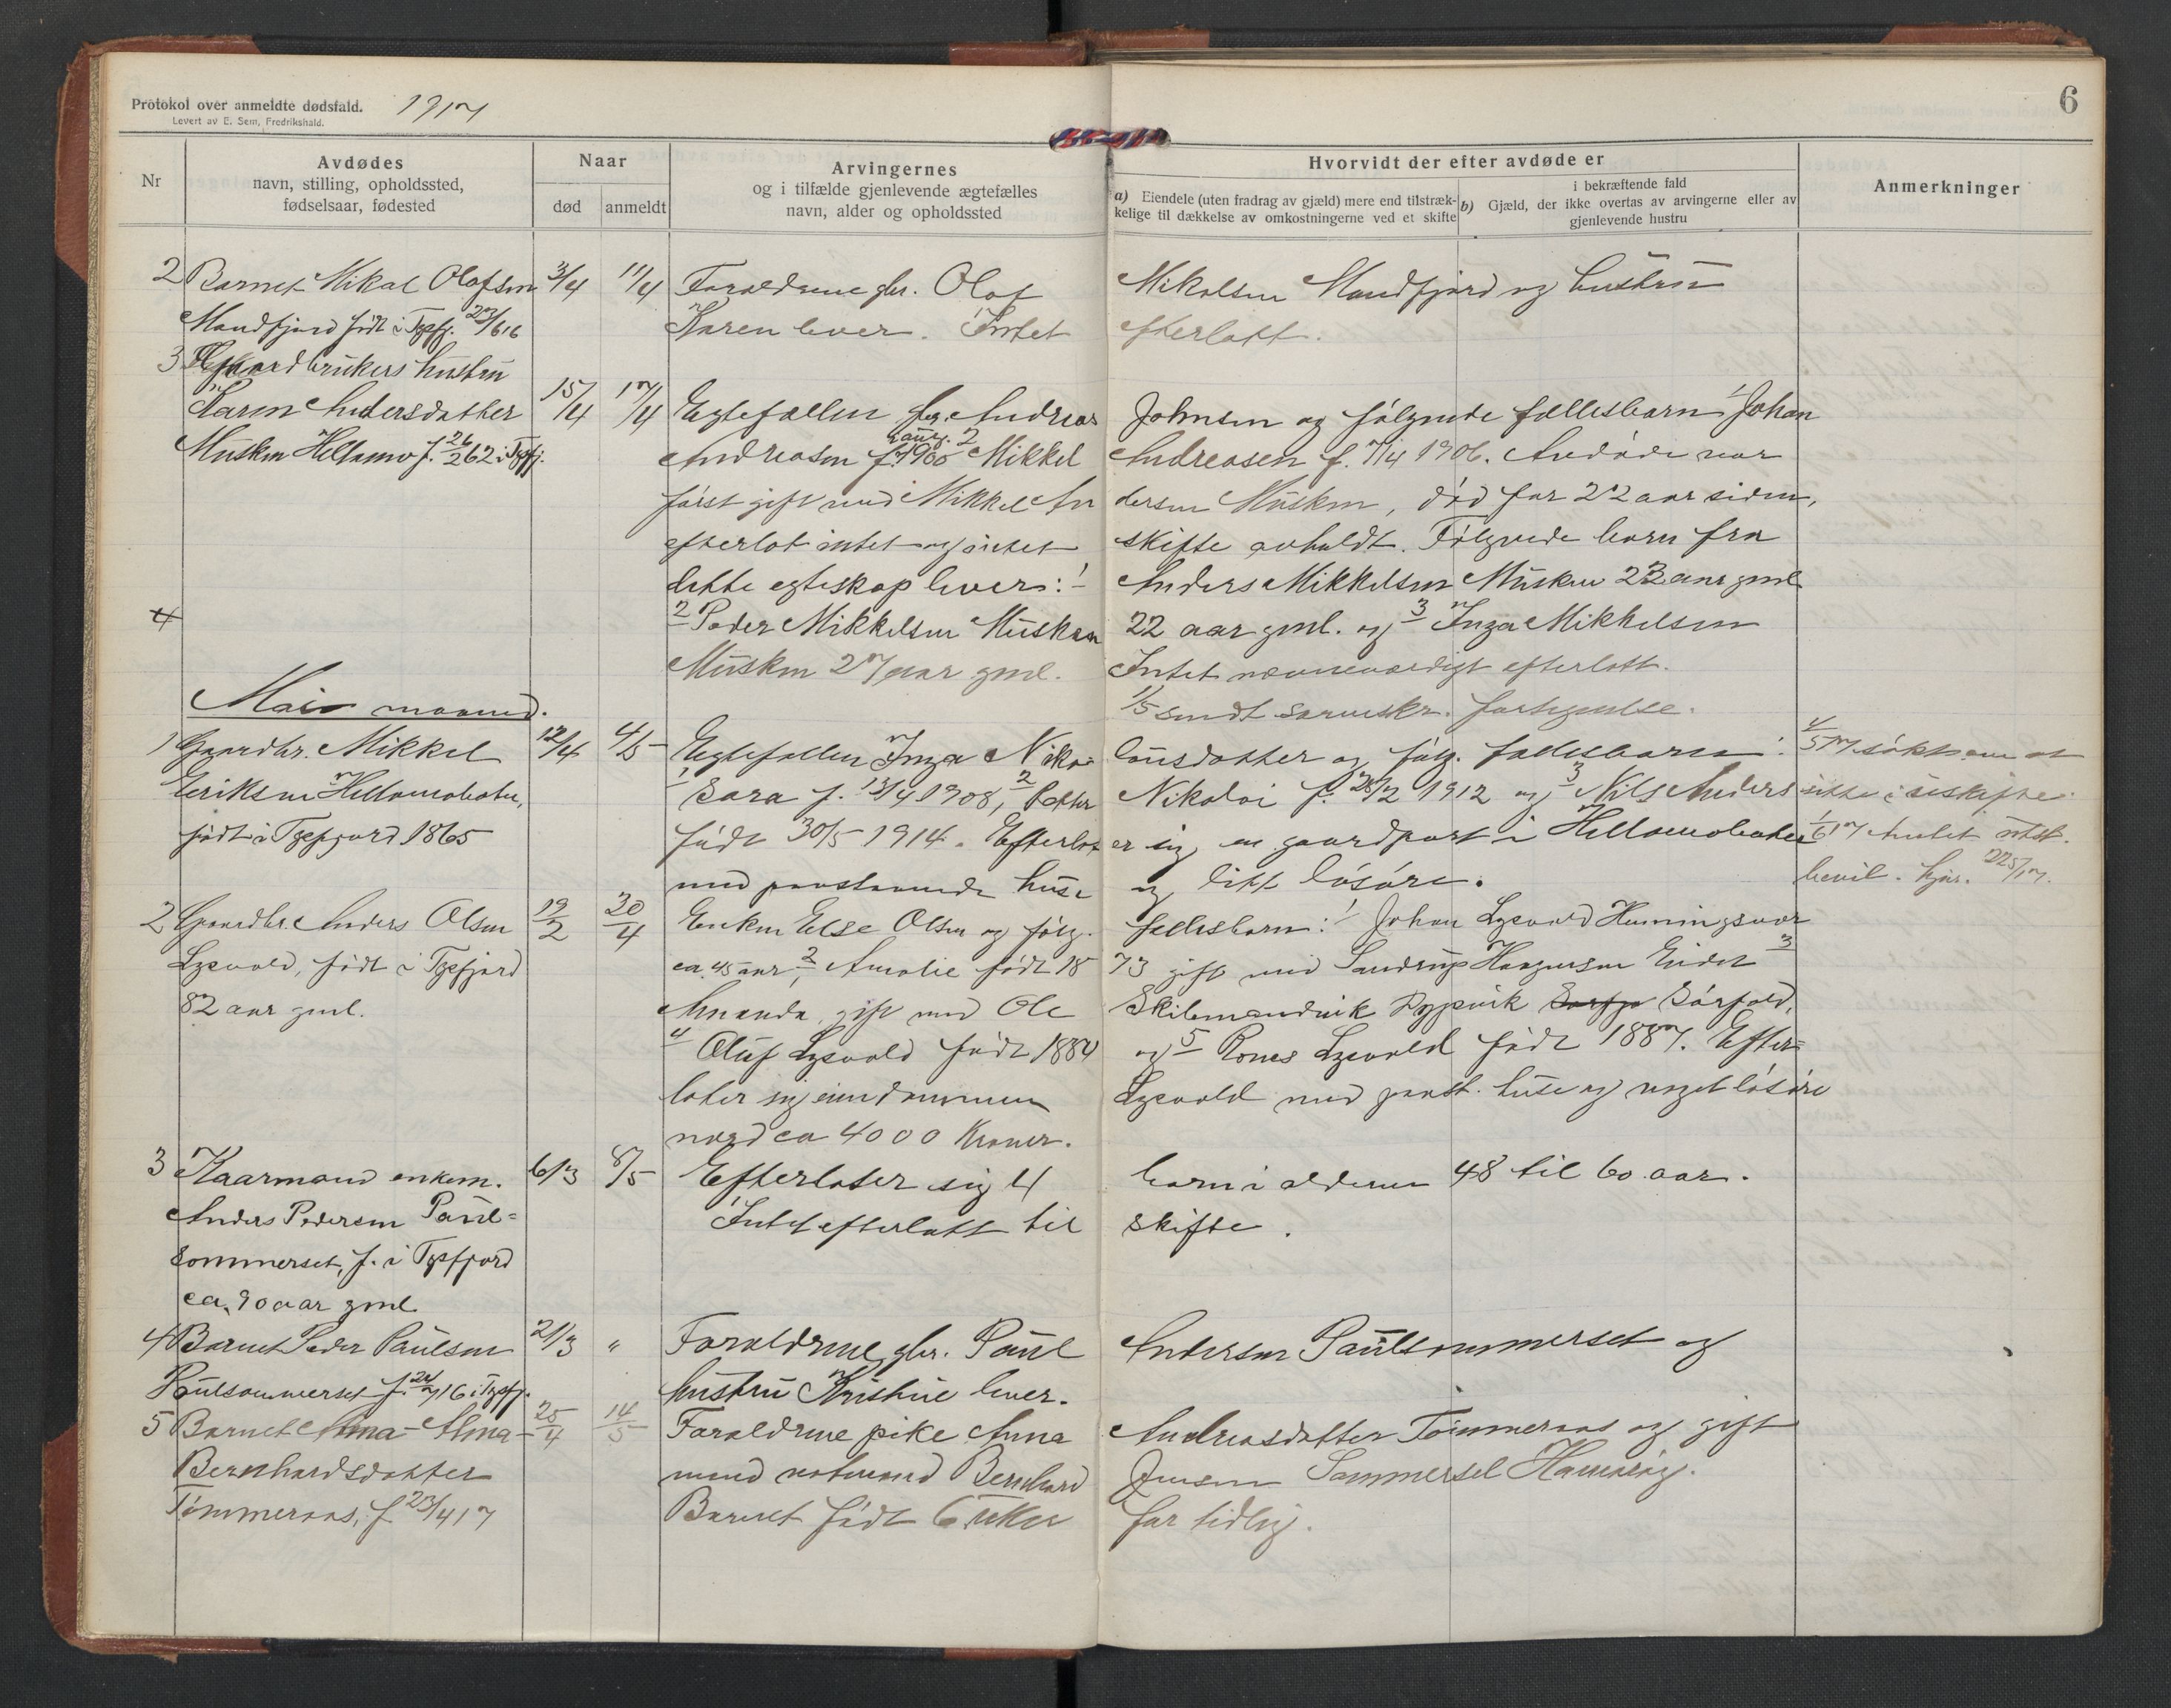 Protokol over anmeldte dødsfald. 1917
Levert av E. Sem, Fredrikshald.
6
Nr
Avdødes
navn, stilling, opholdssted,
fødselsaar, fødested
Naar
død anmeldt
Arvingernes
og i tilfælde gjenlevende ægtefælles
navn, alder og opholdssted
Hvorvidt der efter avdøde er
a) Eiendele (uten fradrag av gjæld) mere end tilstræk-
kelige til dækkelse av omkostningerne ved et skifte
i bekræftende fald
b) Gjæld, der ikke overtas av arvingerne eller av
gjenlevende hustru
Anmerkninger
2 Barnet Mikal Olofsen 3/4 11/4 Foreldrene gbr. Olof Mikalsen Mandfjord og hustru
Mandfjord født i Tysfj. 27/616 Karen lever. Intet efterlatt.
3 Gaardbrukers hustru
Karen Andersdatter 15/4 17/4 Egtefellen gbr. Andreas Johnsen og følgende fellesbarn 1 Johan
Musken Hellamo f. 26/262 i Tysfj. Andreasen f. 1900 2 Mikkel Andreasen f. 7/4 1906. Avdøde var
først gift med Mikkel Andersen Musken, død for 22 aar siden,
efterlot intet og intet skifte avholdt. Følgende barn fra
dette egteskap lever: 1 Anders Mikkelsen Musken 23 aar gml.
4
2 Peder Mikkelsen Musken 22 aar gml. og 3 Inga Mikkelsen
Musken 27 aar gml. Intet nevneverdigt efterlatt.
Mai maaned. 1/5 sendt sorenskr. fortegnelse.
1 Gaardbr. Mikkel 12/4 4/5 Egtefellen Inga Nikolausdatter og følg. fellesbarn: 4/5 17 søkt om at
Eriksen Hellamobotn, 1 Sara f. 13/4 1908, 2 Petter Nikolai f. 28/2 1912 og 3 Nils Anders sitte i uskifte.
født i Tysfjord 1865 født 30/5 1914. Efterlater sig en gaardpart i Hellamobotn 1/6 17 Anbet utst.
med paastaaende huse og litt løsøre. bevil. hjr. 22 5/17.
2 Gaardbr. Anders Olsen 19/2 30/4 Enken Else Olsen og følg. fellesbarn: 1 Johan Lysvold Henningsvær
Lysvold, født i Tysfjord ca. 45 aar, 2 Amalie født 1873 gift med Haagensen Eidet 3
82 aar gml. Amanda, gift med Ole Skilmandvik Sørfold,
4 Oluf Lysvold født 1884 og 5 Rones Lysvold født 1887. Efter-
later sig eiendommen Lysvold med paast. huse og noget løsøre
verd ca 4000 Kroner.
3 Kaarmand enkem. 6/3 8/5 Efterlater sig 4 barn i alderen 48 til 60 aar.
Anders Pedersen Paul- Intet efterlatt til skifte.
sommerset, f. i Tysfjord
ca. 90 aar gml.
4 Barnet Peder Paulsen 21/3 " Foreldrene gbr. Paul Andersen Paulsommerset og
Paulsommerset f. 24/716 i Tysfj. hustru Kristine lever.
5 Barnet Anna-Alma 25/4 14/5 Foreldrene pike Anna Andreasdatter Tømmeraas og gift
Bernhardsdatter mand Bernhard Jensen Sommersel Hamarøy.
Tømmeraas, f. 23/417 Barnet født 6 uker for tidlig.